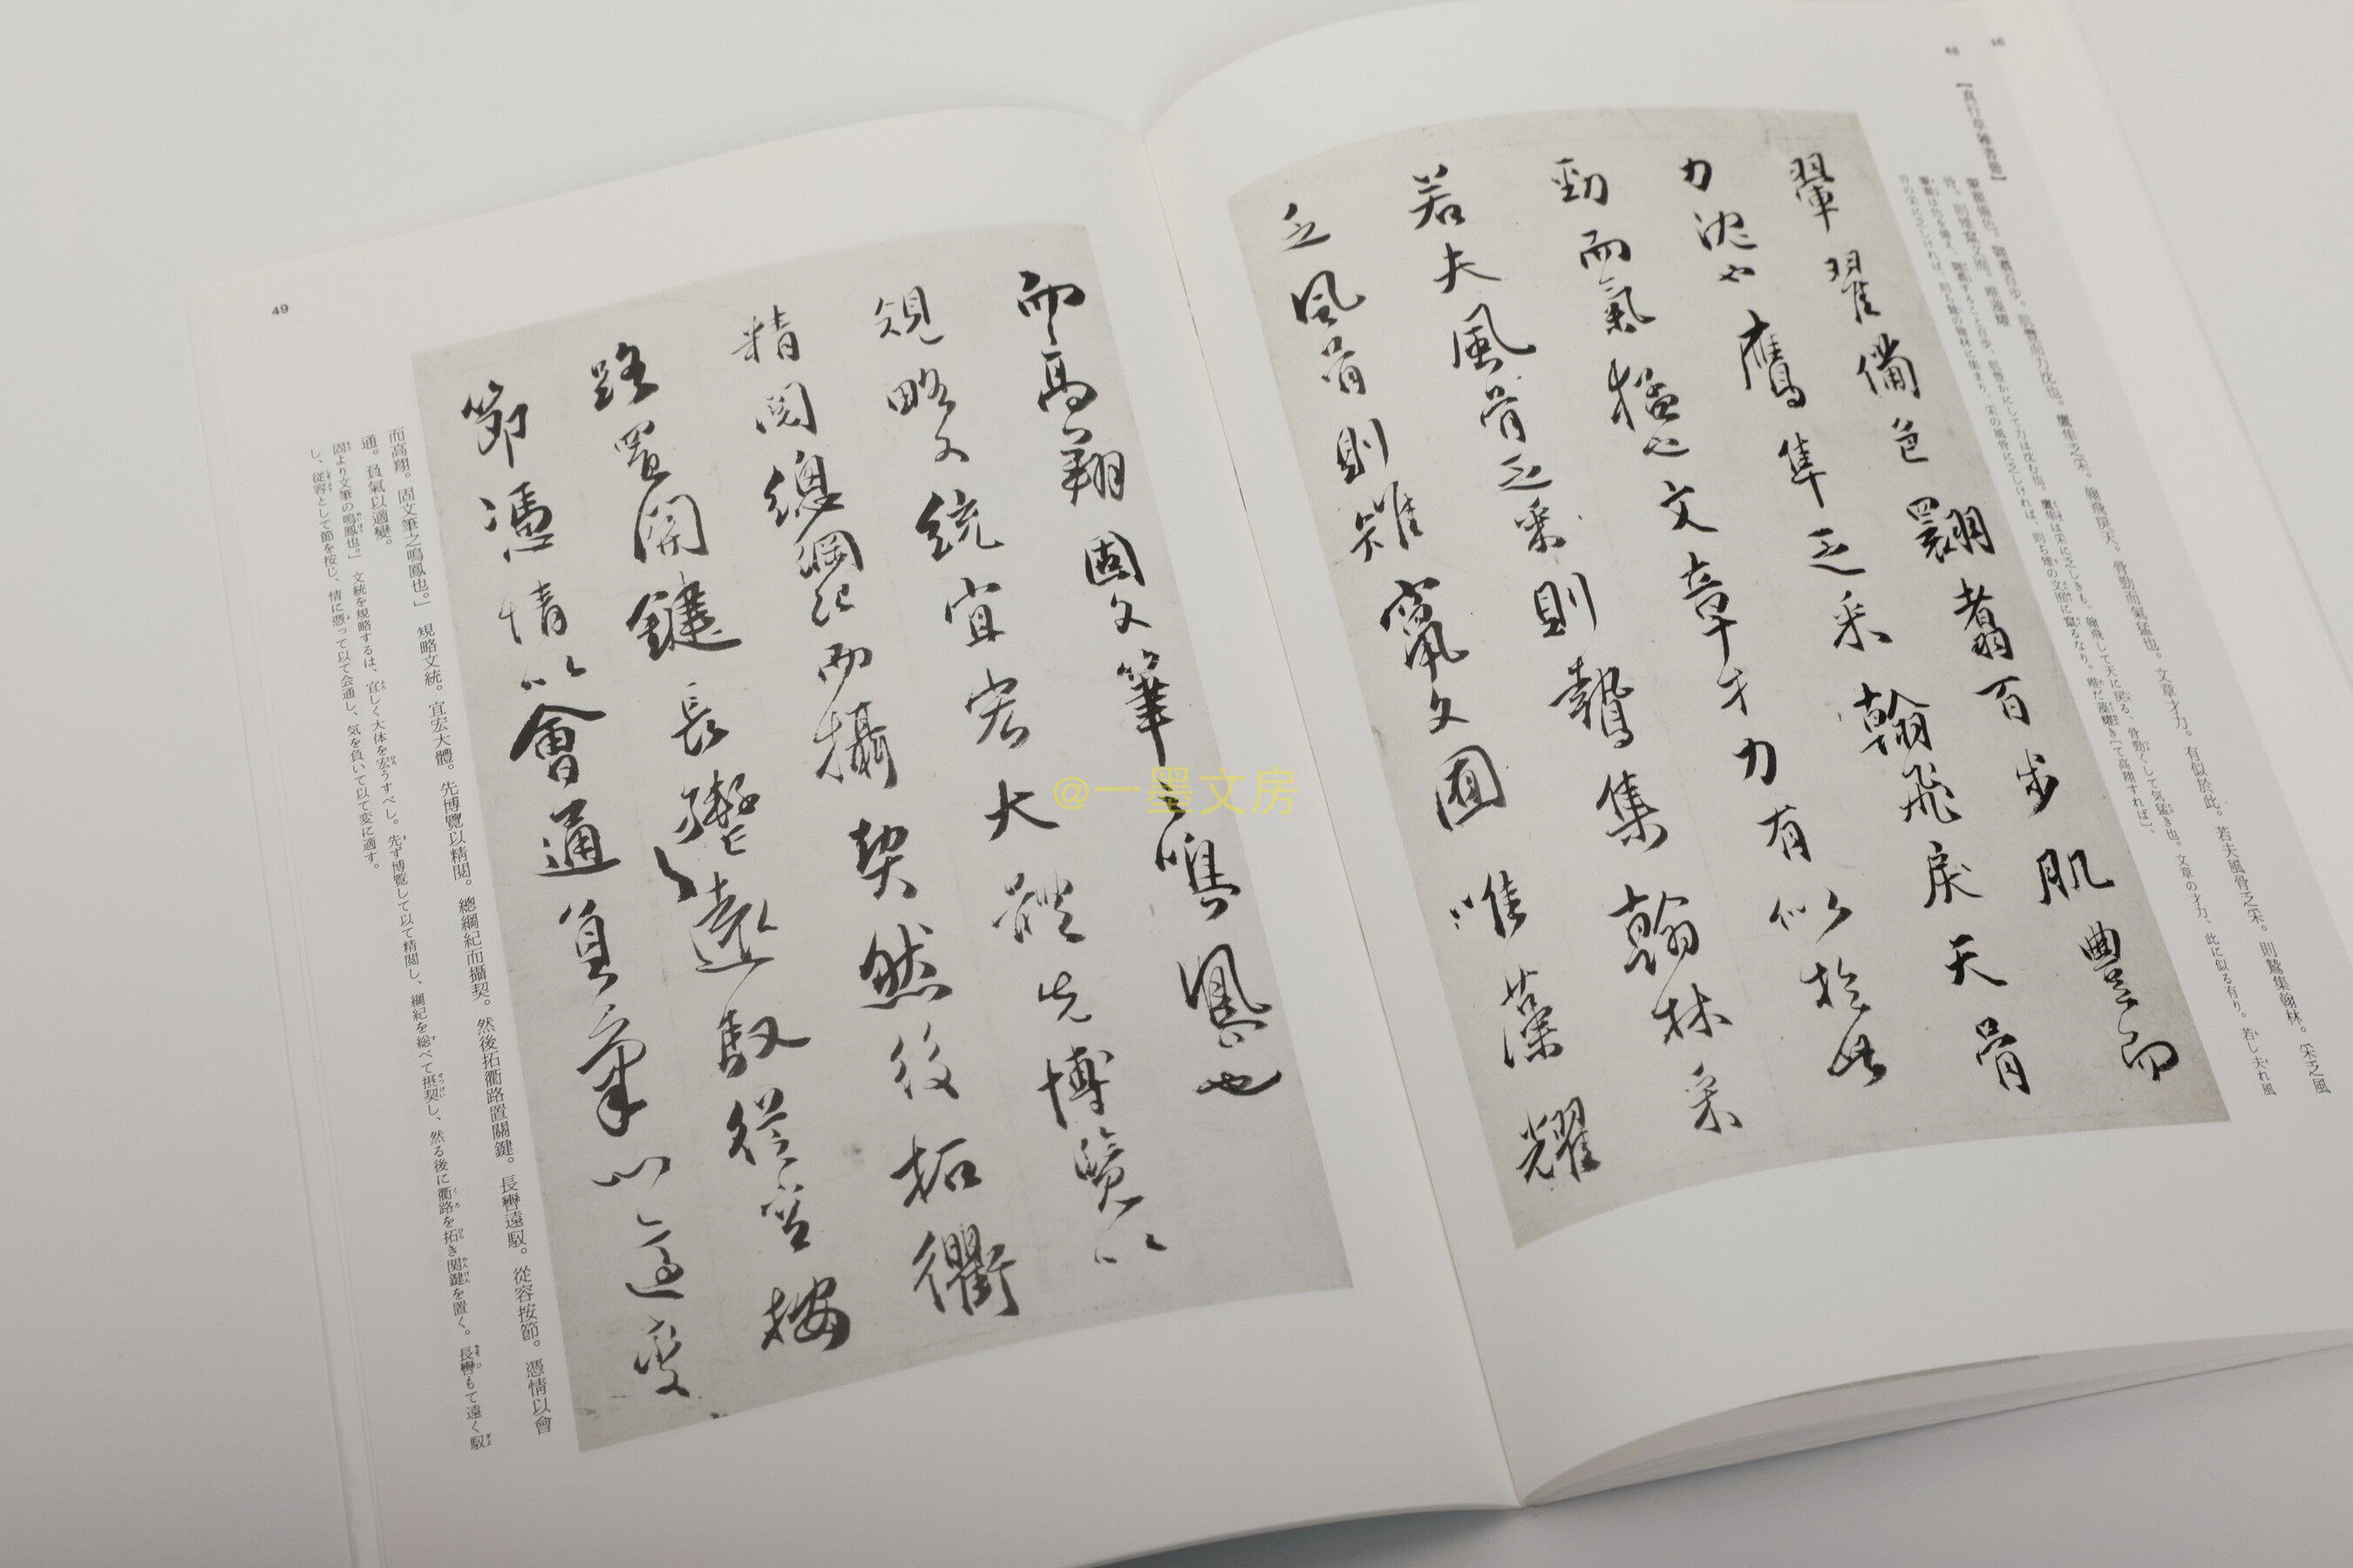 48
【真行草雑書冊】
翬翟備色。翾翥百步。肌豐而力沈也。鷹隼乏采。翰飛戾天。骨勁而氣猛也。文章才力。有似於此。若夫風骨乏采。則鷙集翰林。采乏風
骨。則雉竄文囿。唯藻耀
翬翟備色翾翥百步肌豐而
力沈也鷹隼乏采翰飛戾天骨
勁而氣猛也文章才力有似於此
若夫風骨乏采則鷙集翰林采
乏風骨則雉竄文囿唯藻耀
而高翔固文筆之鳴鳳也
規略文統宜宏大體先博覽以
精閱總綱紀而攝契然後拓衢
路置關鍵長轡遠馭從容按
節憑情以會通負氣以適變
而高翔。固文筆之鳴鳳也。」 規略文統。宜宏大體。先博覽以精閱。總綱紀而攝契。然後拓衢路置關鍵。長轡遠馭。從容按節。憑情以會
通。負氣以適變。
固より文筆の鳴鳳也。」 文統を規略するは、宜しく大体を宏うすべし。先ず博覧して以て精閲し、綱紀を総べて摂契し、然る後に衢路を拓き関鍵を置く。長轡もて遠く馭
し、従容として節を按じ、情に憑って以て会通し、気を負いて以て変に適す。
49
@一墨文房